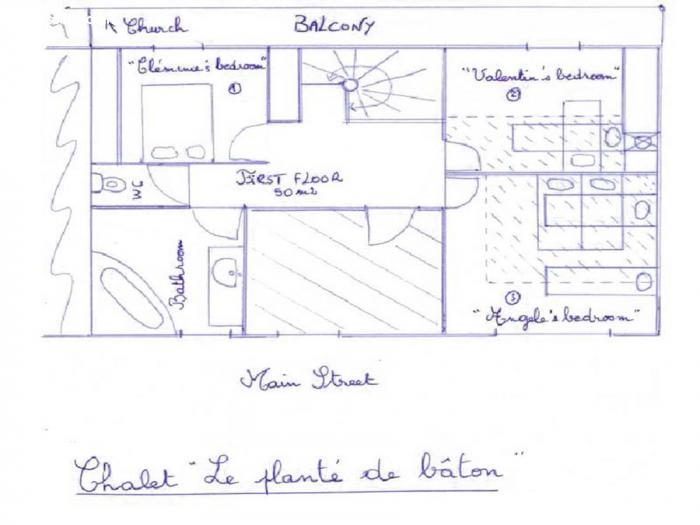 Church
BALCONY
"Clémence's bedroom"
1
"Valentin's bedroom"
2
WC
FIRST FLOOR
50 m2
Bathroom
3
"Angèle's bedroom"
Main Street
Chalet "Le planté de bâton"